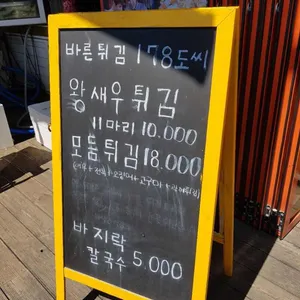 바른튀김 178도씨
왕새우튀김
11마리 10.000
모둠튀김 18.000
바지락
칼국수 5.000